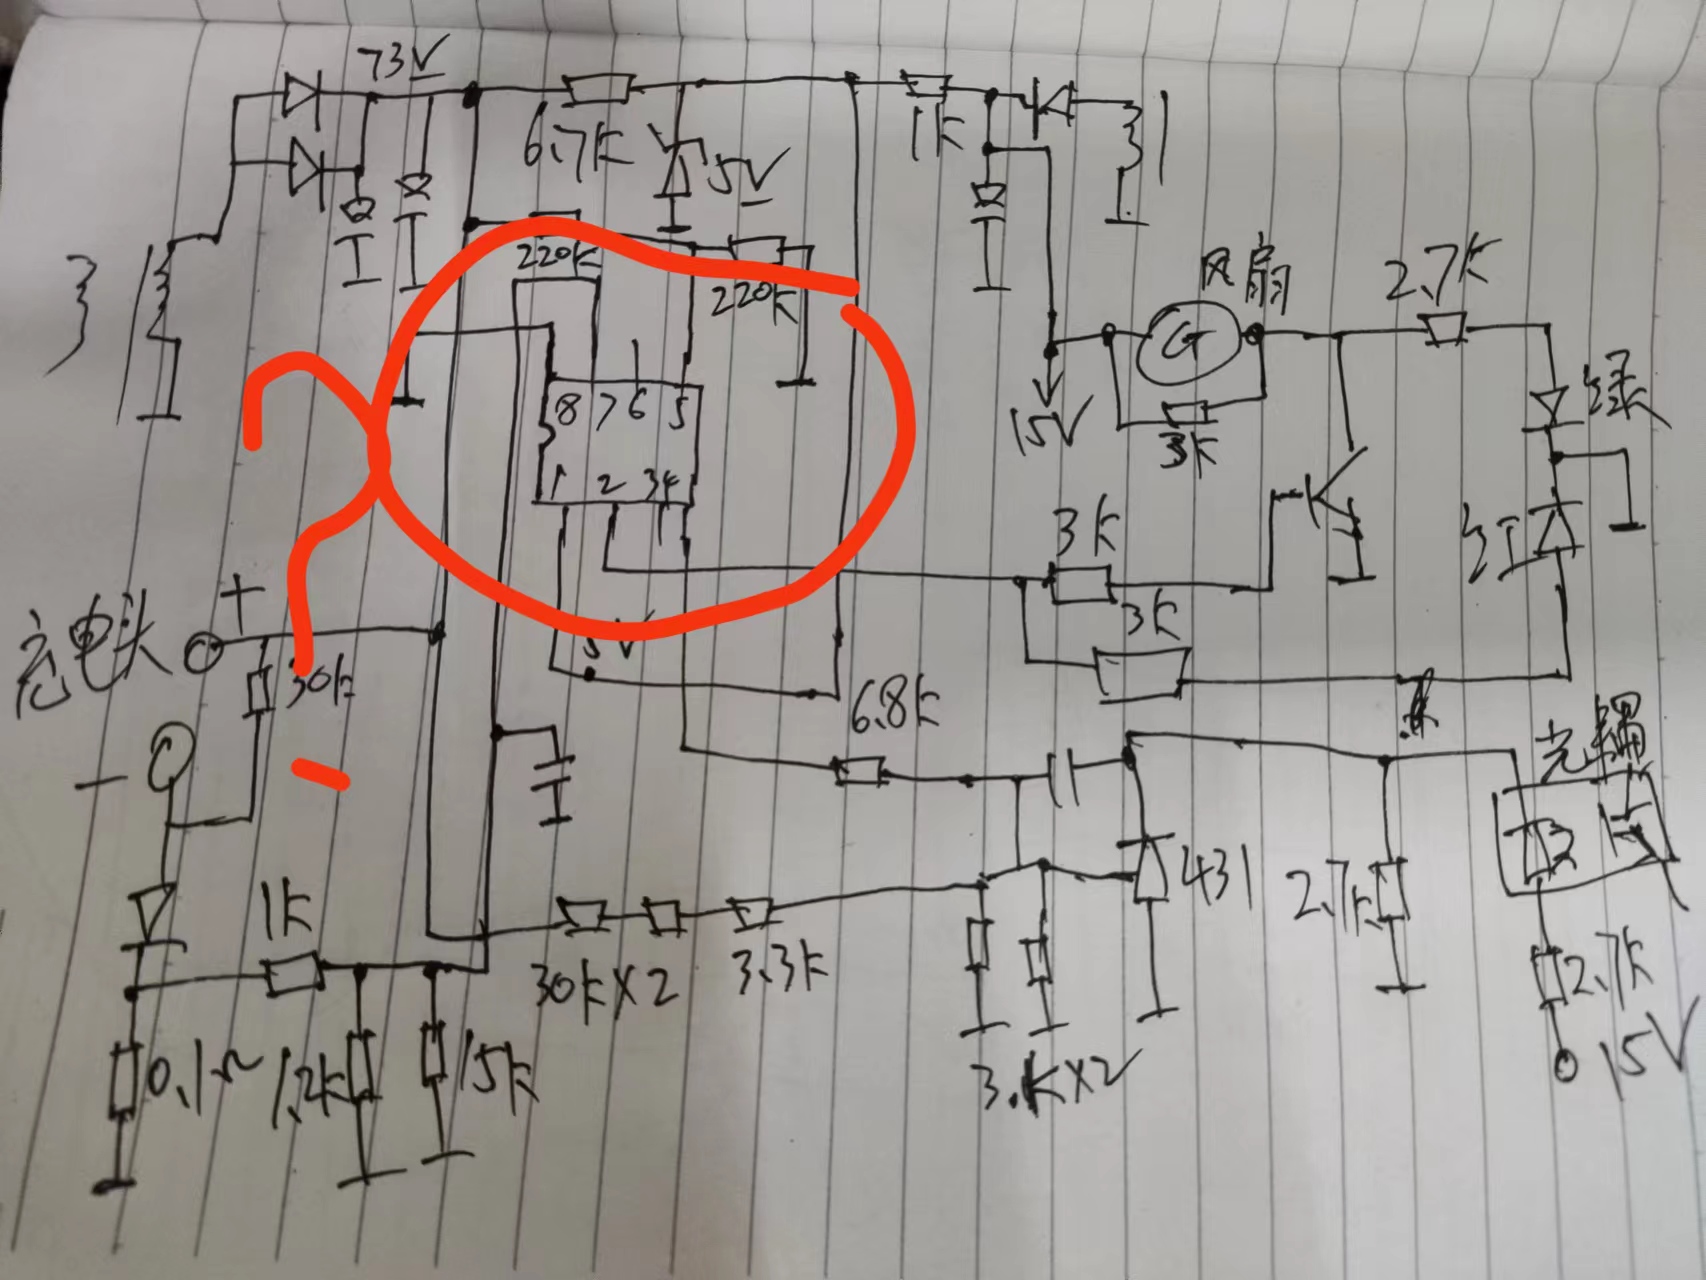 73V
6.7K
5V
1K
220K
220K
风扇
2.7K
15V
3K
绿
8 7 6 5
1 2 3 4
3K
红
3K
充电头
+
30k
5V
6.8k
光耦
-
431
2.7k
1K
30k×2
3.3k
2.7k
0.1Ω
1.2k
15k
15V